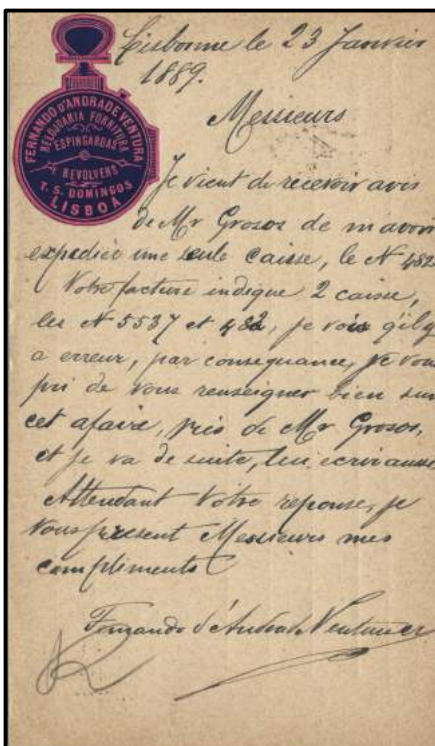 FERNANDO D'ANDRADE VENTURA
RELOJOARIA FORNITURA
ESPINGARDAS
E
REVOLVERS
T. S. DOMINGOS
LISBOA
Lisbonne le 23 Janvier
1889.
Messieurs
Je vient de recevoir avis
de Mr Grosos de m'avoir
expediée une seule caisse, le N 482
Votre facture indique 2 caisse,
les N 5537 et 482, je vois qu'il y
a erreur, par consequance, je vous
pri de vous renseigner bien sur
cet afaire, près de Mr Grosos,
et je va de suite, lui ecrire aussi
Attendant Votre reponse, je
Vous present Messieurs mes
compliments
Fernando d'Andrade Ventura